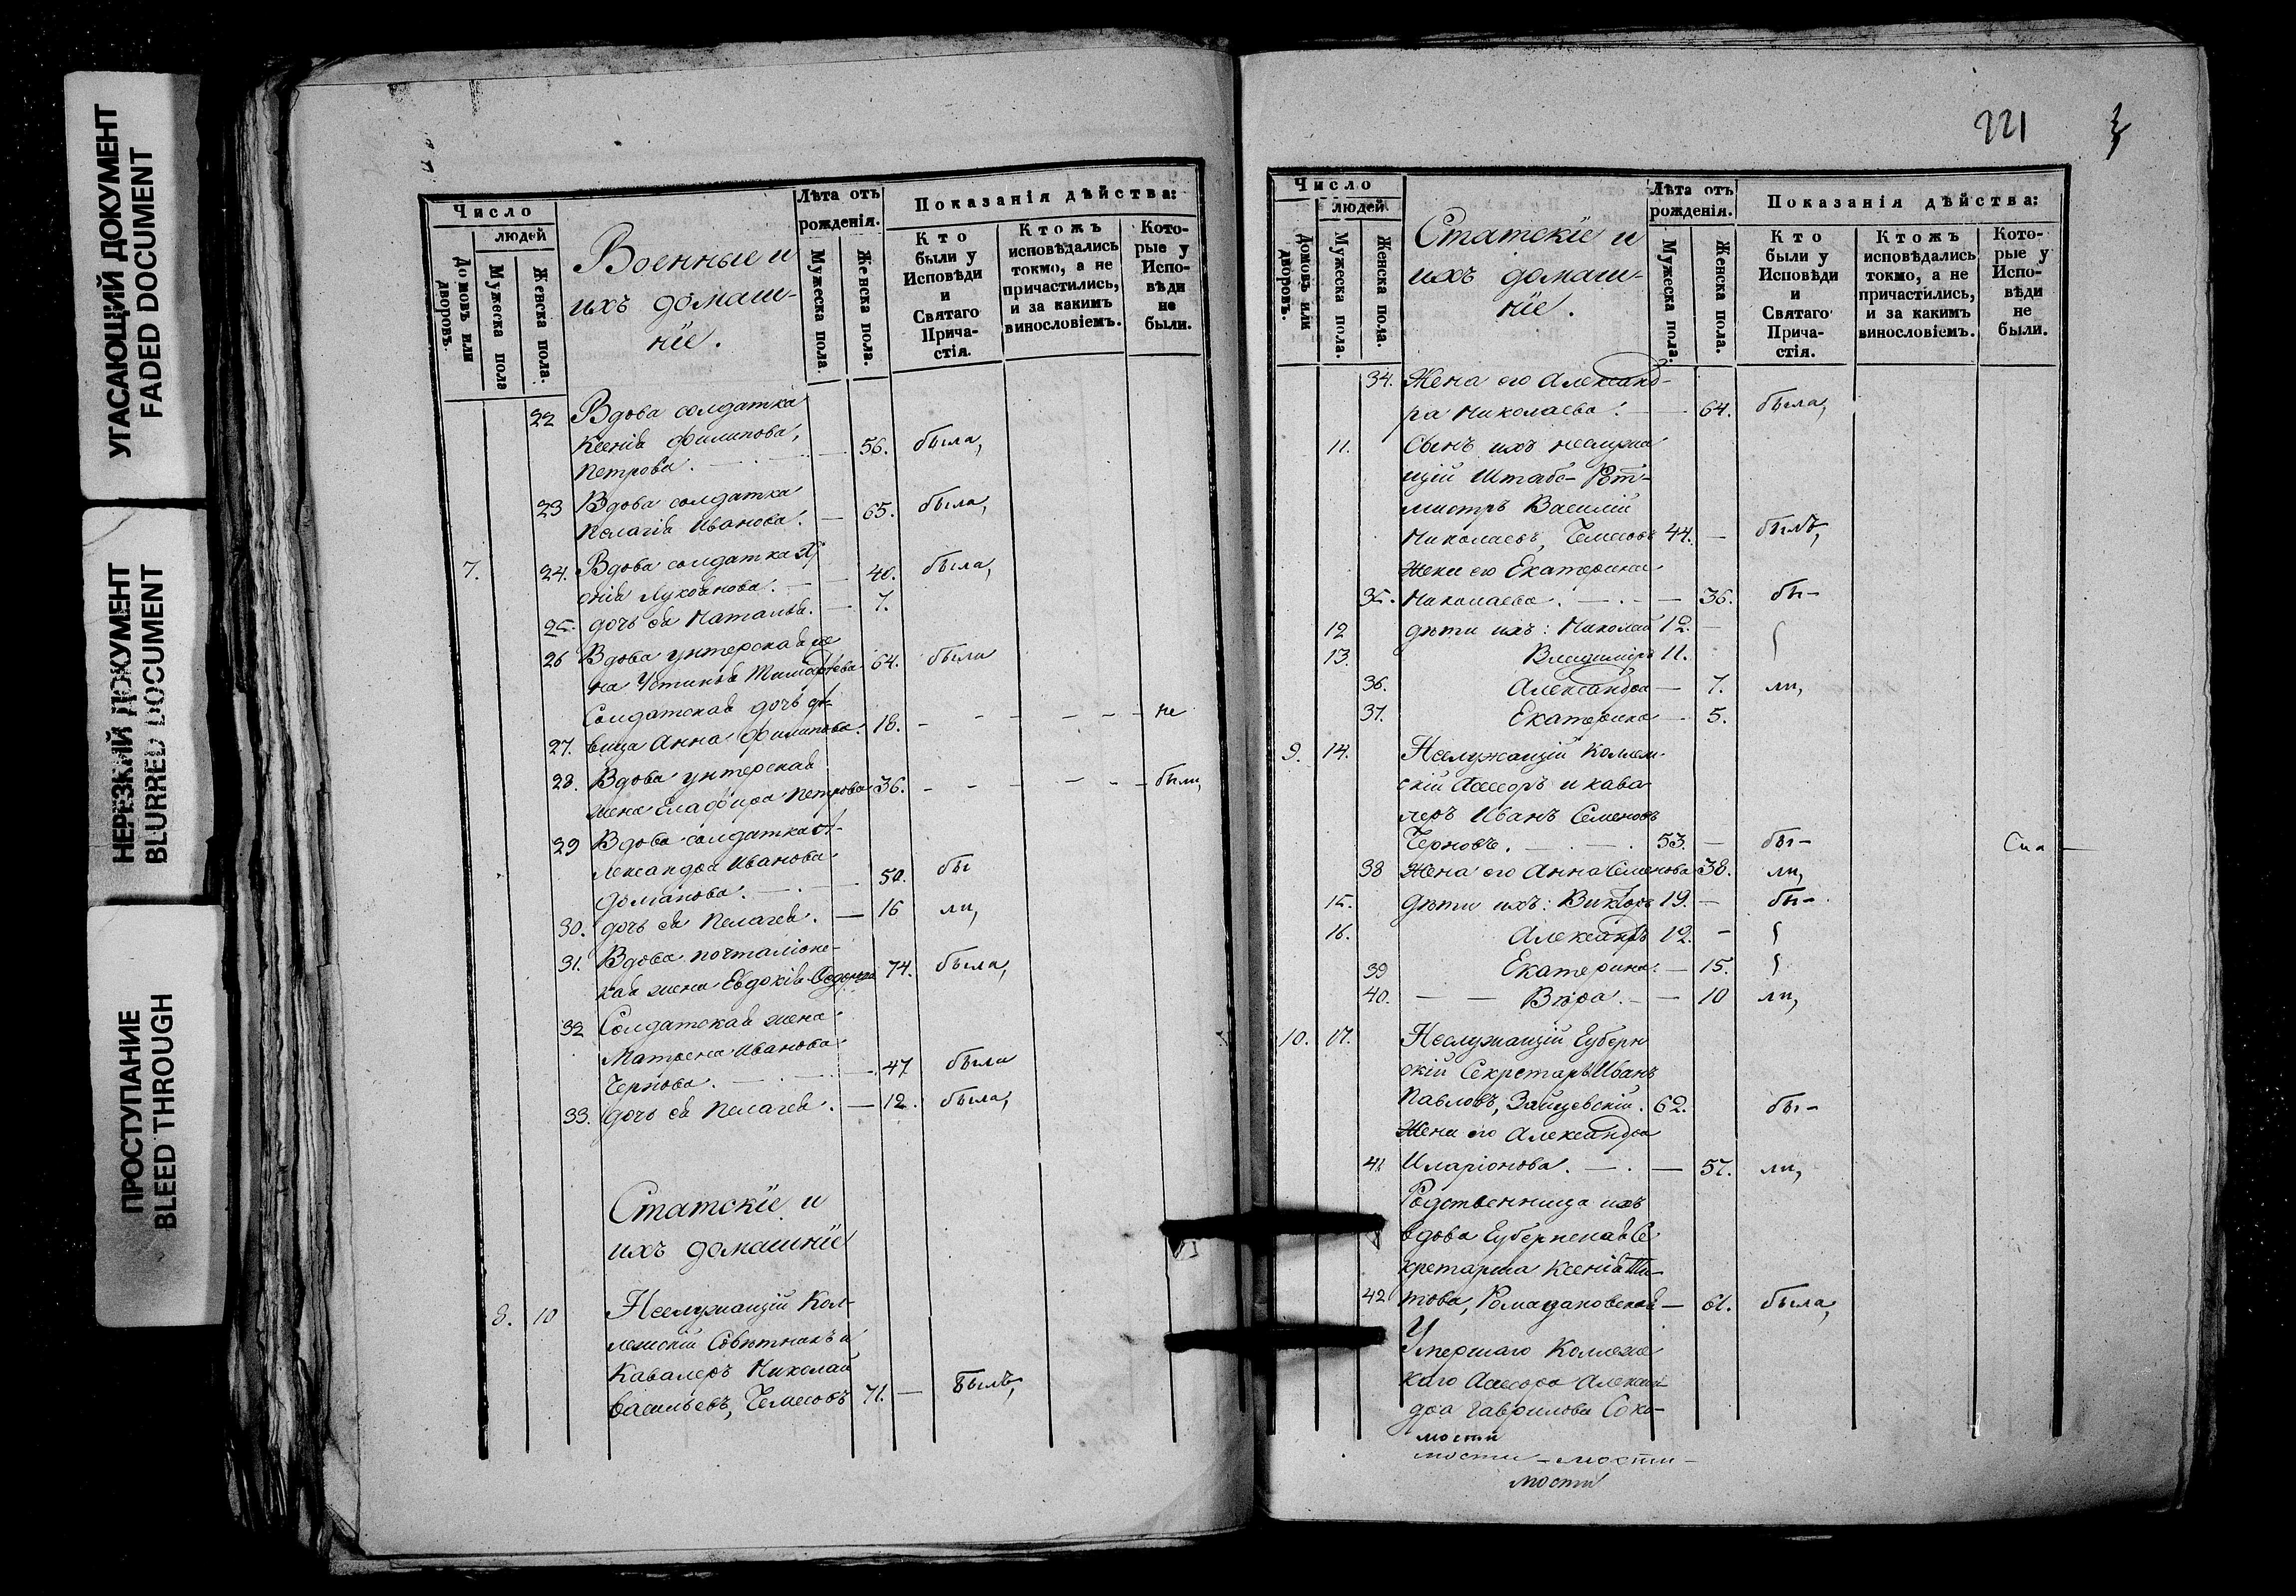 УГАСАЮЩИЙ ДОКУМЕНТ
FADED DOCUMENT
НЕРЕЗКИЙ ДОКУМЕНТ
BLURRED DOCUMENT
ПРОСТУПАНИЕ
BLEED THROUGH
Число
людей
Домовъ или дворовъ.
Мужеска пола
Женска пола.
Военные и
ихъ домаш-
ніе.
Лѣта отъ
рожденія.
Мужеска пола.
Женска пола.
Показанія дѣйства:
Кто
были у
Исповѣди
и
Святаго
Прича-
стія.
Ктожъ
исповѣдались
токмо, а не
причастились,
и за какимъ
винословіемъ.
Кото-
рые у
Испо-
вѣди
не
были.
22 Вдова солдатка
Ксенія Филипова,
Петрова. — 56. была,
23 Вдова солдатка
Пелагія Иванова. — 65. была,
7. 24. Вдова солдатка
Лукоянова. — 40. была,
25. дочь ея Наталья. — 7.
26 Вдова унтерская же
на Устинья Тимофеева 64. была
Солдатская дочь дѣ-
27. вица Анна Филипова. 18. - - - - - - не
28. Вдова унтерская
жена Глафира Петрова 36. - - - - - были,
29 Вдова солдатка А-
лександра Иванова
Доманова. — 50. бы
30. дочь ея Пелагея. — 16 ли,
31. Вдова почталіонс-
кая жена Евдокія 74. была,
32 Солдатская жена
Матрена Иванова
Чернова. — 47 была
33. дочь ея Пелагея. — 12. была,
Статскіе и
ихъ домашніе
8. 10 Неслужащій Кол-
лежскій Совѣтникъ и
Кавалеръ Николай
Васильевъ, Чемесовъ 71. — Былъ,
221
Число
людей
Домовъ или дворовъ.
Мужеска пола.
Женска пола.
Статскіе и
ихъ домаш-
ніе.
Лѣта отъ
рожденія.
Мужеска пола.
Женска пола.
Показанія дѣйства:
Кто
были у
Исповѣди
и
Святаго
Прича-
стія.
Ктожъ
исповѣдались
токмо, а не
причастились,
и за какимъ
винословіемъ.
Кото-
рые у
Испо-
вѣди
не
были.
34. Жена его Александ-
ра Николаева. — 64. была,
11. Сынъ ихъ неслужа
щій Штабс-Рот-
мистръ Василій
Николаевъ, Чемесовъ 44. — былъ,
Жена его Екатерина
35. Николаева. — 36. бы-
12 дѣти ихъ: Николай 12. —
13. Владиміръ 11.
36. Александра — 7. ли,
37. Екатерина — 5.
9. 14. Неслужащій Коллеж-
скій Асесоръ и кава
леръ Иванъ Семеновъ
Черновъ. — 53. — бы-
38 Жена его Анна Семенова 38. ли,
15. дѣти ихъ: Викторъ 19. — бы-
16. Александръ 12. -
39 Екатерина. — 15.
40. — — Вѣра. — 10 ли,
10. 17. Неслужащій Губерн
скій Секретарь Иванъ
Павловъ, Зайцевскій. 62. бы-
Жена его Александра
41. Иларіонова. — 57. ли,
Родственница ихъ
вдова Губернская Се
кретарша Ксенія Ти-
42 това, Ромадановская — 61. была,
Умершаго Коллежс
каго Асесора Алексан-
дра Гаврилова Соко-
мости
мости - мости -
мости